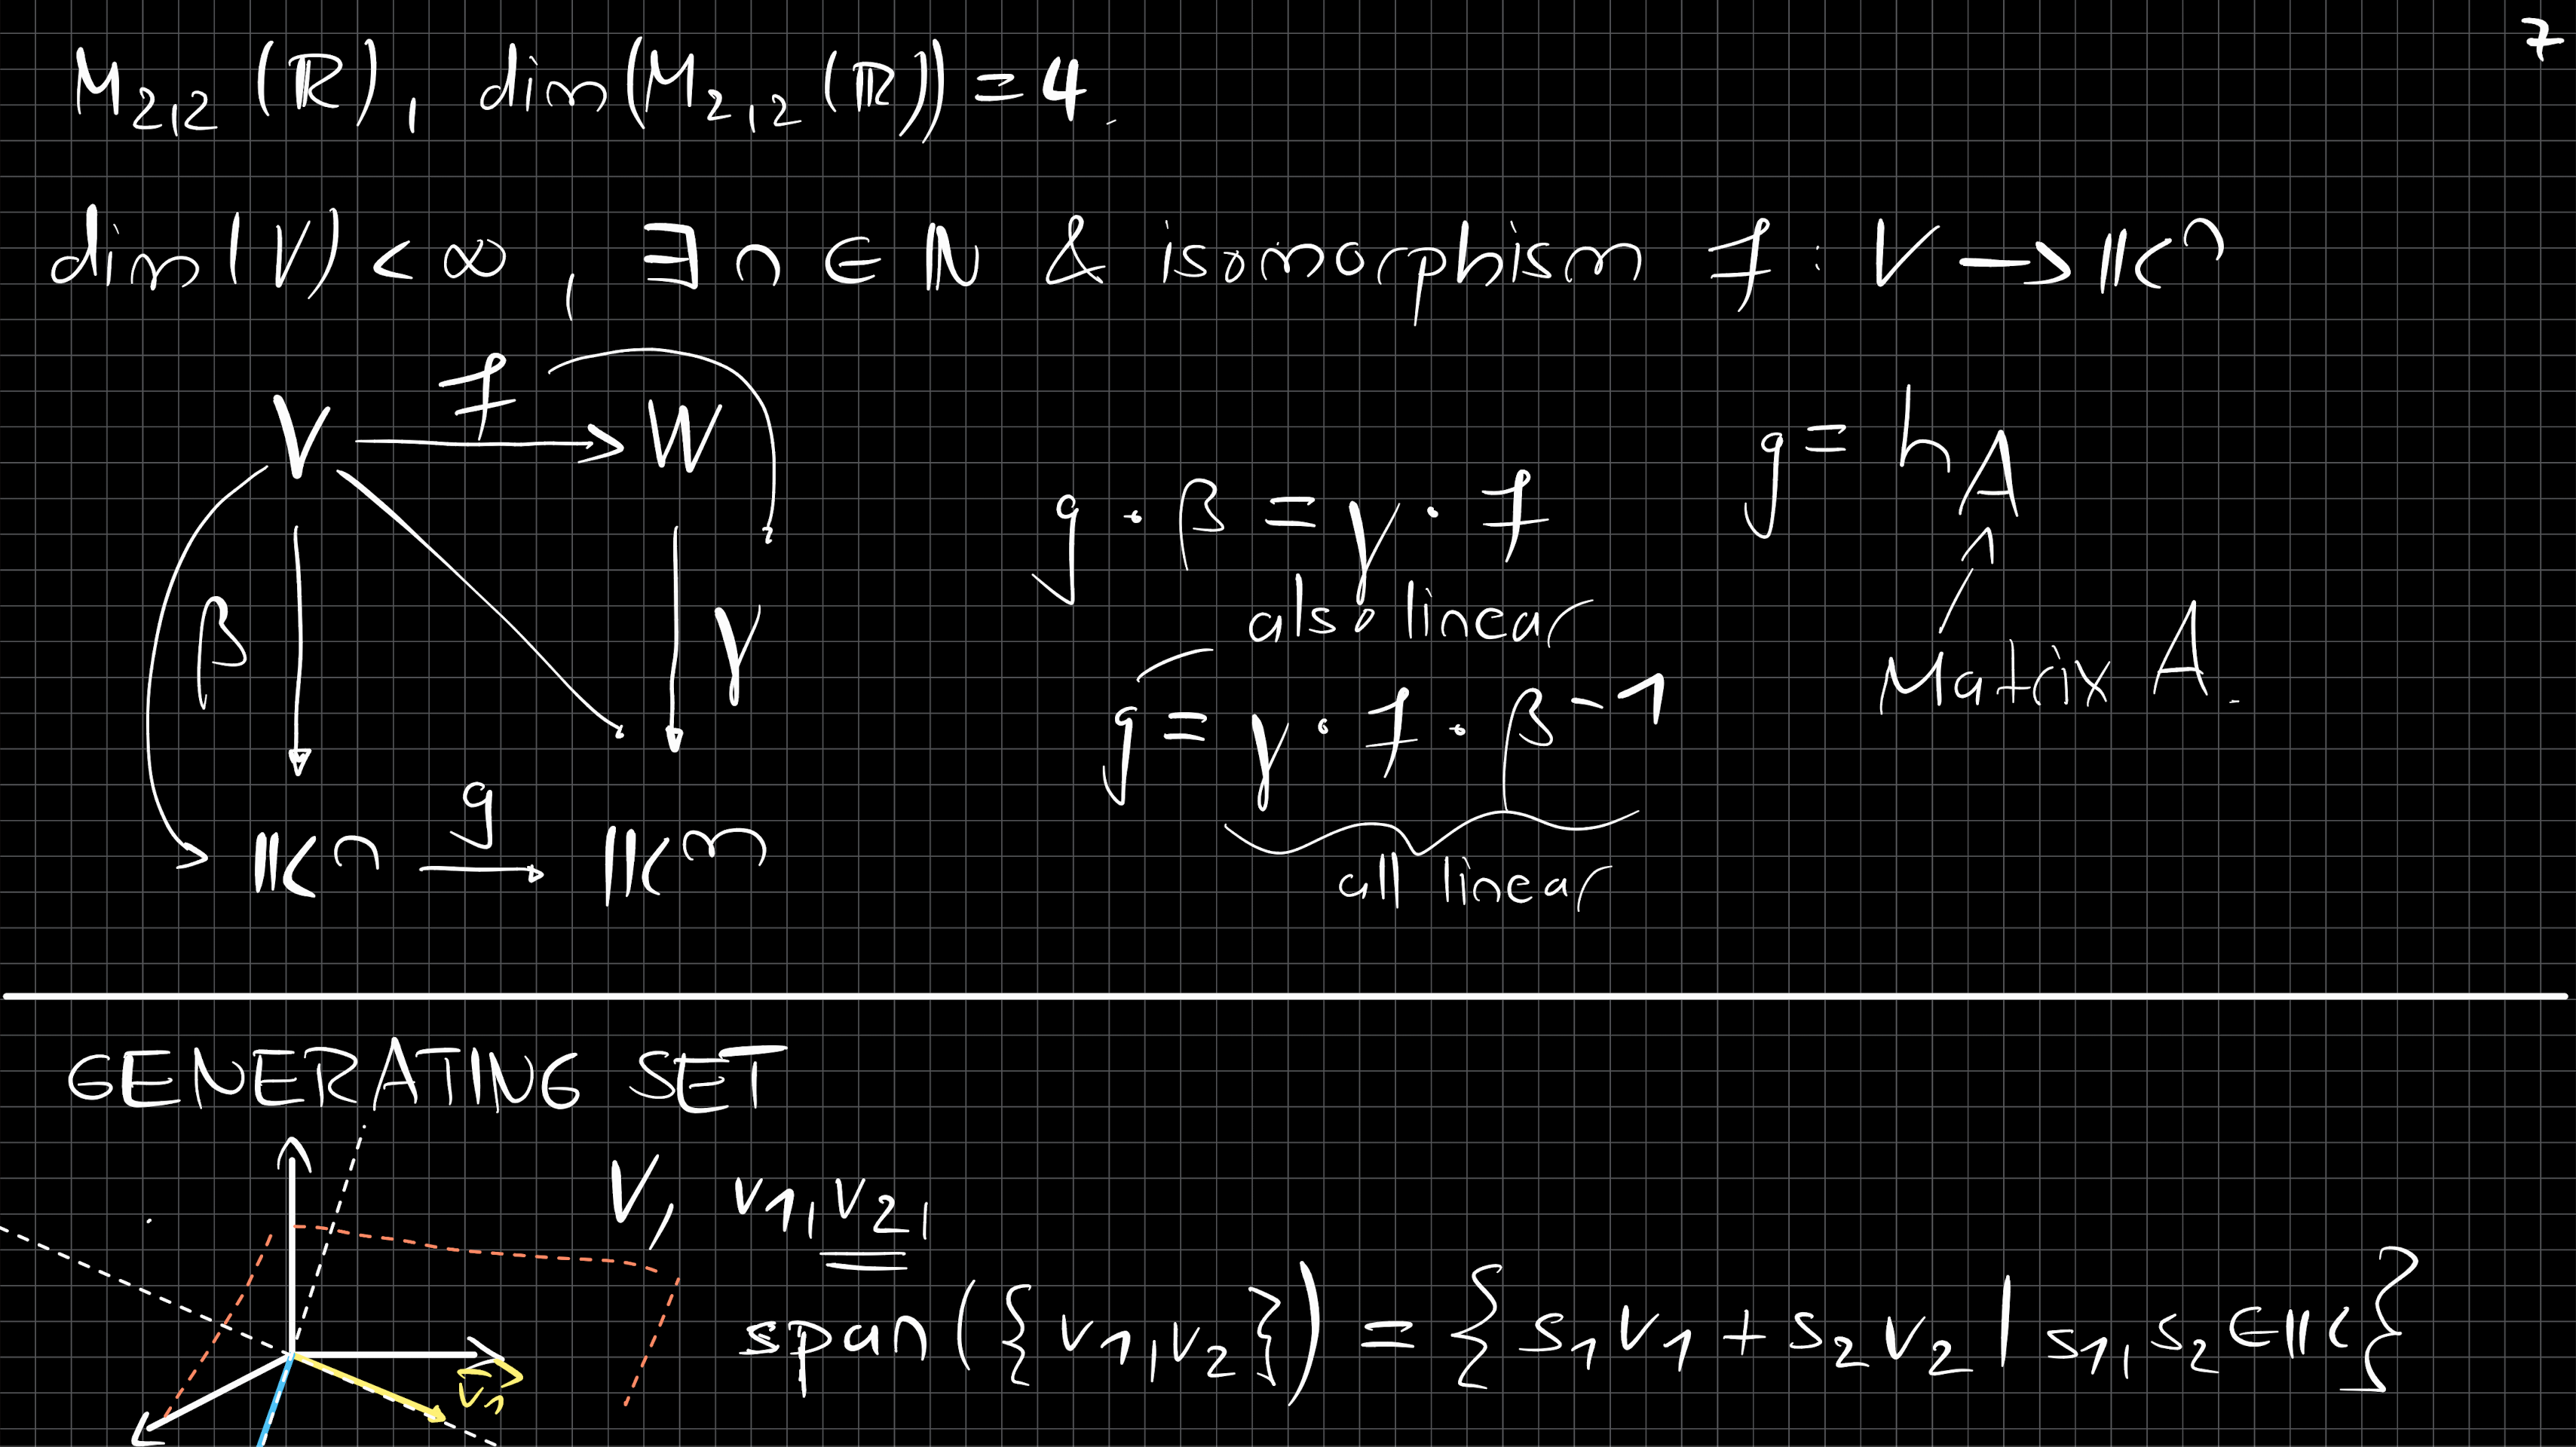 7
M₂,₂ (ℝ), dim(M₂,₂ (ℝ)) = 4.
dim(V) < ∞, ∃ n ∈ ℕ & isomorphism f : V → 𝕂ⁿ
V f W
β γ
𝕂ⁿ g 𝕂ᵐ
g · β = γ · f
also linear
g = γ · f · β⁻¹
all linear
g = h_A
Matrix A.
GENERATING SET
V, v₁, v₂,
span({v₁, v₂}) = {s₁v₁ + s₂v₂ | s₁, s₂ ∈ 𝕂}
v⃗₁